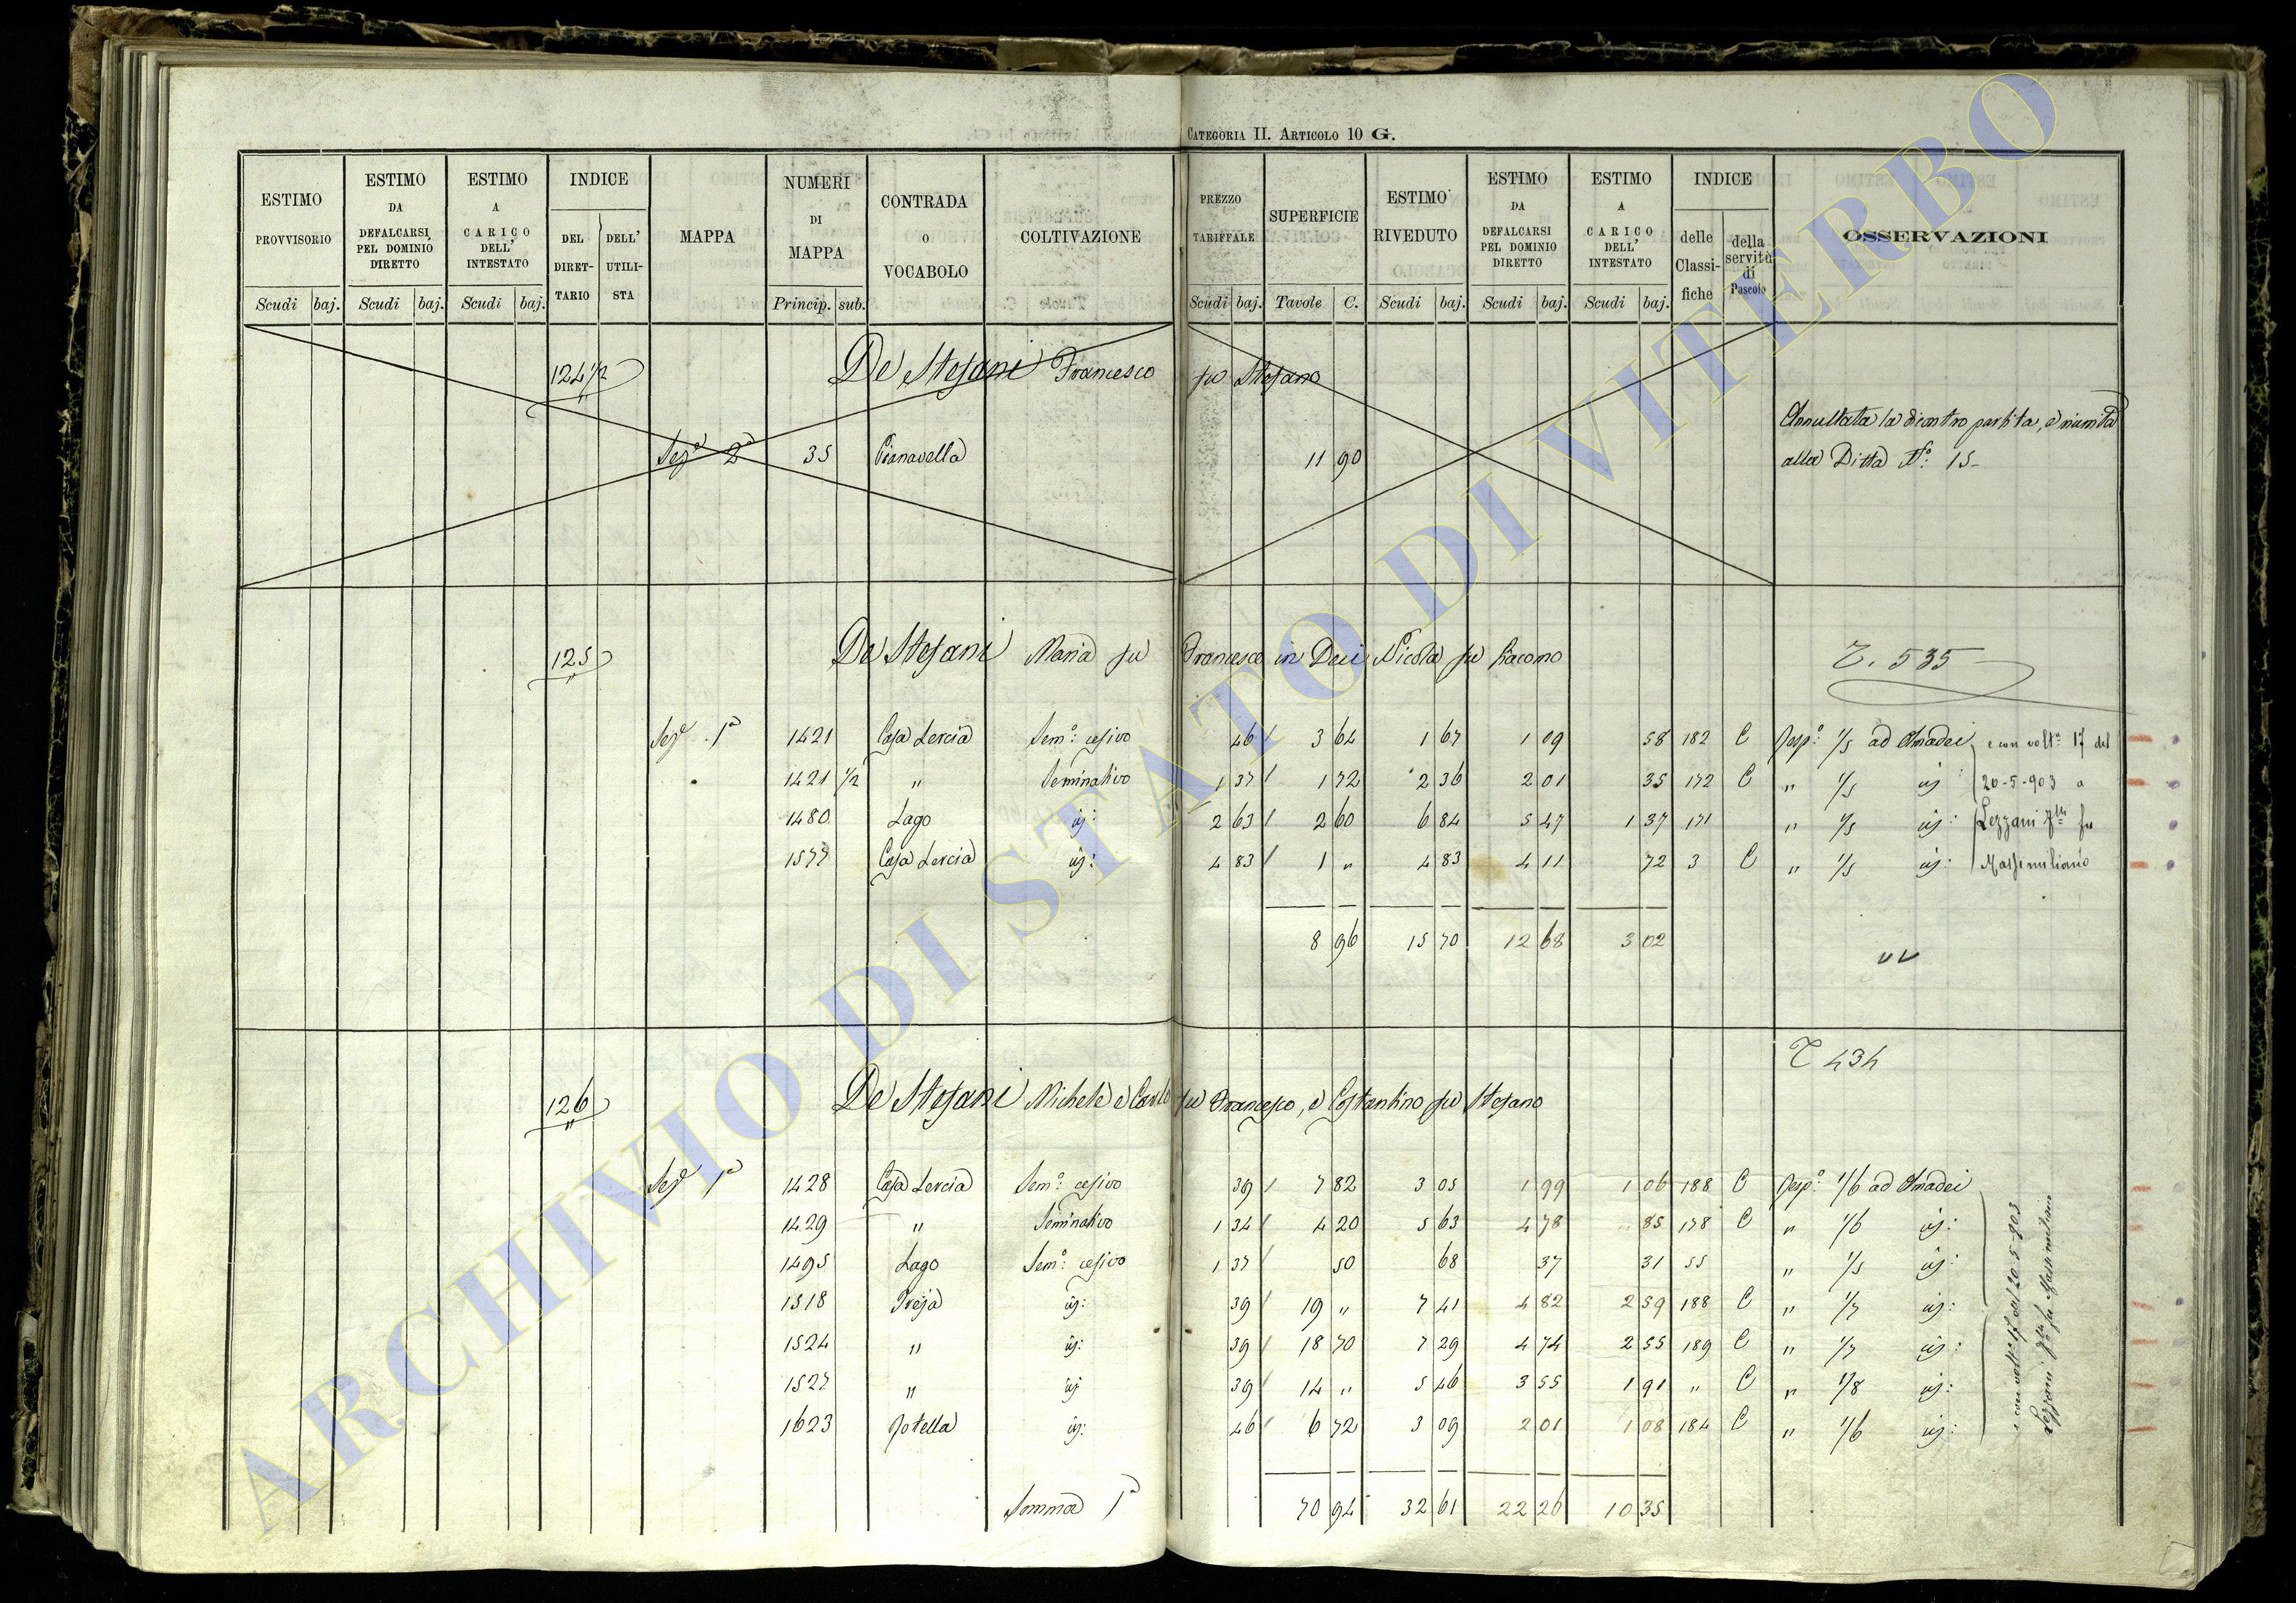 CATEGORIA II. ARTICOLO 10 G.
ESTIMO PROVVISORIO Scudi baj.
ESTIMO DA DEFALCARSI PEL DOMINIO DIRETTO Scudi baj.
ESTIMO A CARICO DELL' INTESTATO Scudi baj.
INDICE DEL DIRET- TARIO DELL' UTILI- STA
MAPPA
NUMERI DI MAPPA Princip. sub.
CONTRADA O VOCABOLO
COLTIVAZIONE
PREZZO TARIFFALE Scudi baj.
SUPERFICIE Tavole C.
ESTIMO RIVEDUTO Scudi baj.
ESTIMO DA DEFALCARSI PEL DOMINIO DIRETTO Scudi baj.
ESTIMO A CARICO DELL' INTESTATO Scudi baj.
INDICE delle Classi- fiche della servitù di Pascolo
OSSERVAZIONI
124 1/2 De Stefani Francesco fu Stefano
Annullata la dicontro partita, e riunita
Sez.e 2a 35 Pianavella 11 90 alla Ditta N.o 15-
125 De Stefani Maria fu Francesco in Deci Nicola fu Giacomo T. 535
Sez.e 1a 1421 Casa Lercia Sem.o cesivo 46 3 64 1 67 1 09 58 182 C Resp.o 1/5 ad Amadei e con volt.a 17 del
1421 1/2 " Seminativo 1 37 1 72 2 36 2 01 35 172 C " 1/5 id: 20-5-903 a
1480 Lago id: 2 63 2 60 6 84 5 47 1 37 171 " 1/5 id: Lezzani f.lli fu
1577 Casa Lercia id: 4 83 1 " 4 83 4 11 72 3 C " 1/5 id: Massimiliano
8 96 15 70 12 68 3 02
T 434
126 De Stefani Michele e Carlo fu Francesco, e Costantino fu Stefano
Sez.e 1a 1428 Casa Lercia Sem.o cesivo 39 7 82 3 05 1 99 1 06 188 C Resp.o 1/6 ad Amadei
1429 " Seminativo 1 34 4 20 5 63 4 78 85 178 C " 1/6 id:
1495 Lago Sem.o cesivo 1 37 50 68 37 31 55 " 1/5 id:
1518 Treja id: 39 19 " 7 41 4 82 2 59 188 C " 1/7 id:
1524 " id: 39 18 70 7 29 4 74 2 55 189 C " 1/7 id:
1527 " id 39 14 " 5 46 3 55 1 91 " C " 1/8 id:
1623 Rotella id: 46 6 72 3 09 2 01 1 08 184 C " 1/6 id:
e con volt.a 17 del 20-5-903
Lezzani f.lli fu Massimiliano
Somma 1a 70 94 32 61 22 26 10 35
ARCHIVIO DI STATO DI VITERBO